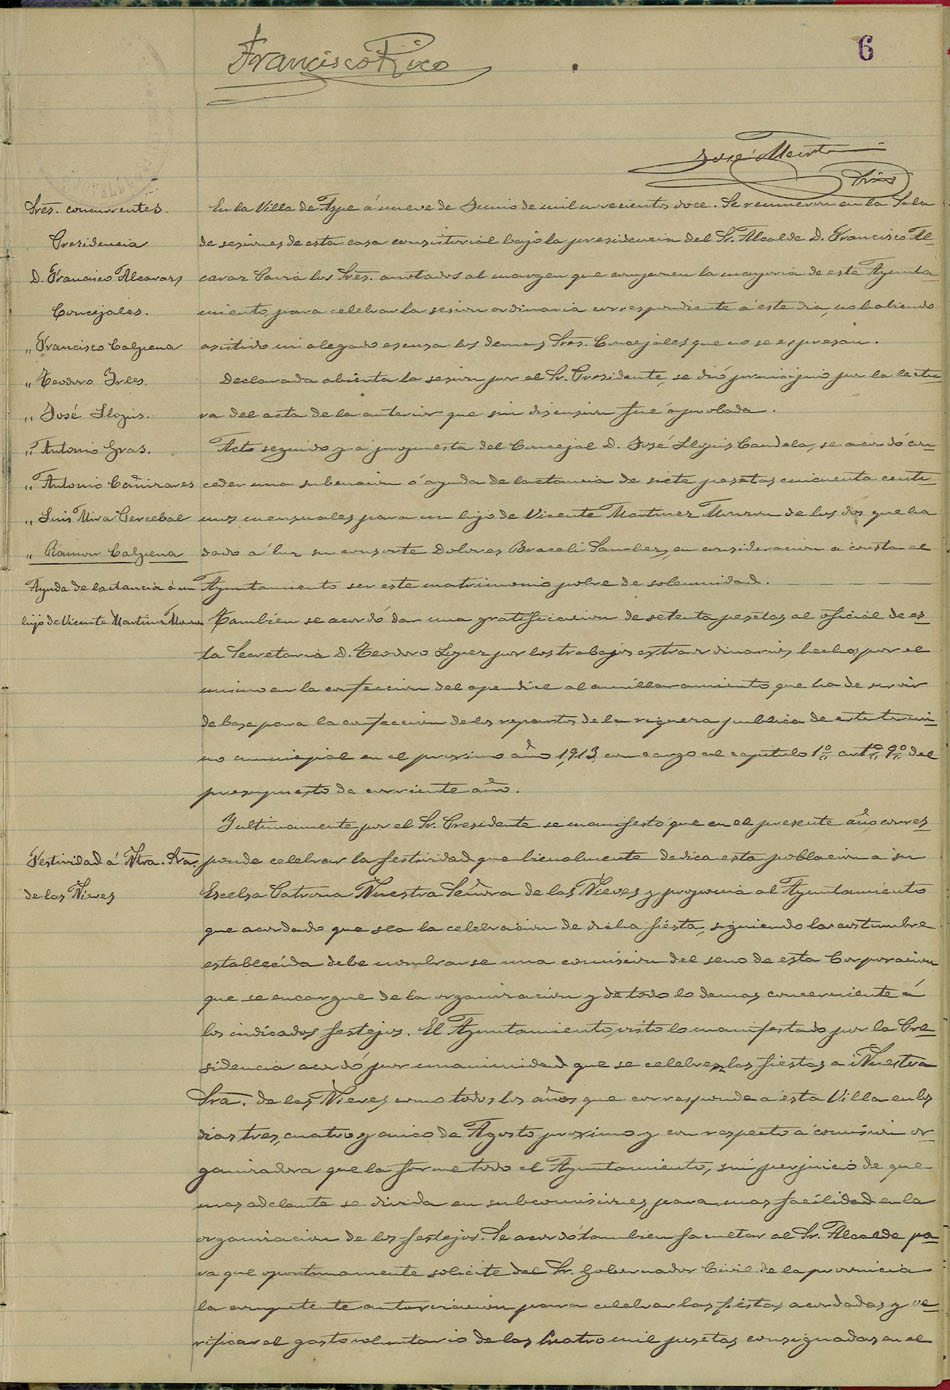 6
Francisco Rico
José
Sres. concurrentes.
Presidencia
D. Francisco Alcaraz
Concejales.
" Francisco Calpena
" Teodoro Irles
" José Llopis.
" Antonio Gras.
" Antonio Cañizares
" Luis Mira Cercebal
" Ramon Calpena
Ayuda de lactancia á un
hijo de Vicente Martinez
Festividad á Ntra. Sra.
de las Nieves
En la Villa de Aspe á nueve de Junio de mil novecientos doce. Se reunieron en la Sala
de sesiones de esta casa consistorial bajo la presidencia del Sr. Alcalde D. Francisco Al-
caraz los Sres. anotados al margen que componen la mayoria de este Ayunta-
miento, para celebrar la sesion ordinaria correspondiente a este dia, no habiendo
asistido ni alegado escusa los demas Sres. Concejales que no se espresan.
Declarada abierta la sesion por el Sr. Presidente, se dió principio por la lectu-
ra del acta de la anterior que sin discusion fué aprobada.
Acto seguido y a propuesta del Concejal D. José Llopis Candela, se acordó con-
ceder una subencion ó ayuda de lactancia de siete pesetas cincuenta centi-
mos mensuales para un hijo de Vicente Martinez de los dos que ha
dado á luz su consorte Dolores Braceli Sanchez, en consideracion a constar al
Ayuntamiento ser este matrimonio pobre de solemnidad.
Tambien se acordó dar una gratificacion de setenta pesetas al oficial de es-
ta Secretaria D. Teodoro Lopez por los trabajos extraordinarios hechos por el
mismo en la confeccion del apendice al amillaramiento que ha de servir
de base para la confeccion de los repartos de la riqueza publica de este termi-
no municipal en el proximo año 1,913, con cargo al capitulo 1º artº 9º del
presupuesto de corriente año.
Y ultimamente por el Sr. Presidente se manifesto que en el presente año corres-
ponde celebrar la festividad que bienalmente dedica esta poblacion a su
Excelsa Patrona Nuestra Señora de las Nieves y proponia al Ayuntamiento
que acordado que sea la celebracion de dicha fiesta, siguiendo la costumbre
establecida debe nombrarse una comision del seno de esta Corporacion
que se encargue de la organizacion y de todo lo demas concerniente á
los indicados festejos. El Ayuntamiento, visto lo manifestado por la Pre-
sidencia acordó por unanimidad que se celebren las fiestas a Nuestra
Sra. de las Nieves como todos los años que corresponde a esta Villa en los
dias tres, cuatro y cinco de Agosto proximo y con respecto a comision or-
ganizadora que la forme todo el Ayuntamiento, sin perjuicio de que
mas adelante se divida en subcomisiones, para mas facilidad en la
organizacion de los festejos. Se acordó tambien facultar al Sr. Alcalde pa-
ra que oportunamente solicite del Sr. Gobernador Civil de la provincia
la competente autorizacion para celebrar las fiestas acordadas y ve-
rificar el gasto voluntario de las Cuatro mil pesetas consignadas en el